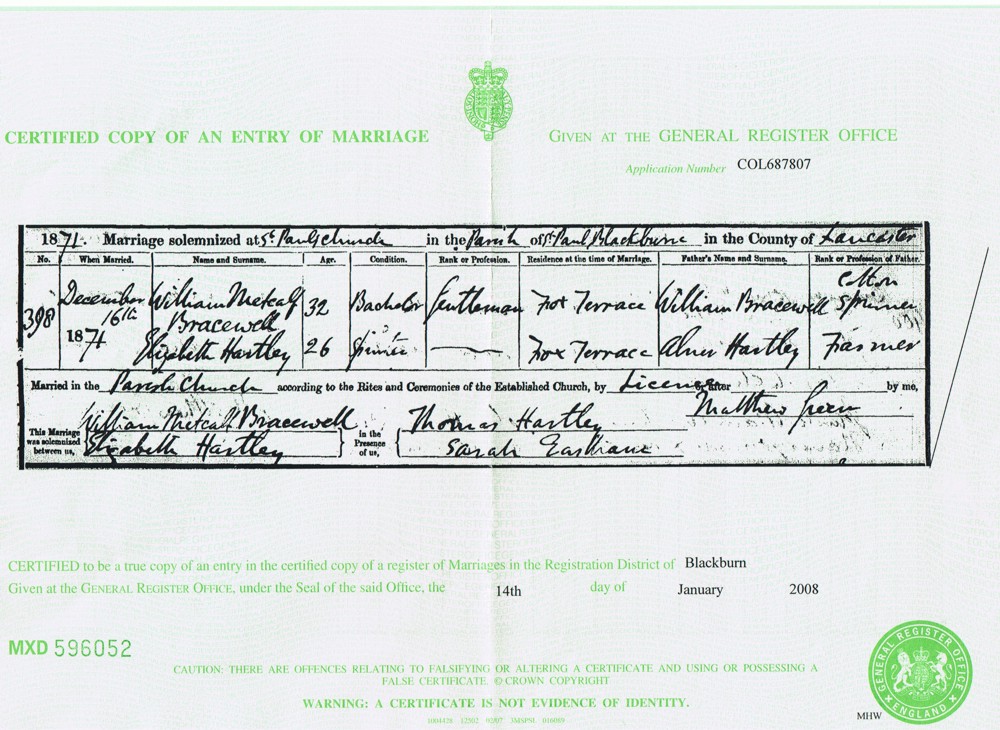 CERTIFIED COPY OF AN ENTRY OF MARRIAGE
GIVEN AT THE GENERAL REGISTER OFFICE
Application Number COL687807
1871. Marriage solemnized at St Paul's Church in the Parish of St Paul Blackburn in the County of Lancaster
No. When Married. Name and Surname. Age. Condition. Rank or Profession. Residence at the time of Marriage. Father's Name and Surname. Rank or Profession of Father.
398 December 16th 1871 William Metcalf Bracewell 32 Bachelor Gentleman Fox Terrace William Bracewell Cotton Spinner
Elizabeth Hartley 26 Spinster Fox Terrace Abner Hartley Farmer
Married in the Parish Church according to the Rites and Ceremonies of the Established Church, by License or after by me,
Matthew Green
This Marriage was solemnized between us,
William Metcalf Bracewell
Elizabeth Hartley
in the Presence of us,
Thomas Hartley
Sarah
CERTIFIED to be a true copy of an entry in the certified copy of a register of Marriages in the Registration District of Blackburn
Given at the GENERAL REGISTER OFFICE, under the Seal of the said Office, the 14th day of January 2008
MXD 596052
CAUTION: THERE ARE OFFENCES RELATING TO FALSIFYING OR ALTERING A CERTIFICATE AND USING OR POSSESSING A
FALSE CERTIFICATE. © CROWN COPYRIGHT
WARNING: A CERTIFICATE IS NOT EVIDENCE OF IDENTITY.
MHW
GENERAL REGISTER OFFICE
ENGLAND